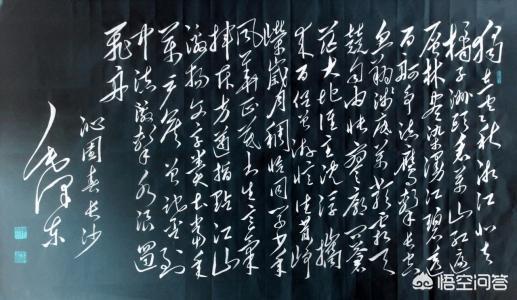 独立寒秋湘江北去
橘子洲头看万山红遍
层林尽染漫江碧透
百舸争流鹰击长空
鱼翔浅底万类霜天
竞自由怅寥廓问苍
茫大地谁主沉浮携
来百侣曾游忆往昔峥
嵘岁月稠恰同学少年
风华正茂书生意气
挥斥方遒指点江山
激扬文字粪土当年
万户侯曾记否到
中流击水浪遏
飞舟
沁园春长沙
毛泽东
悟空问答